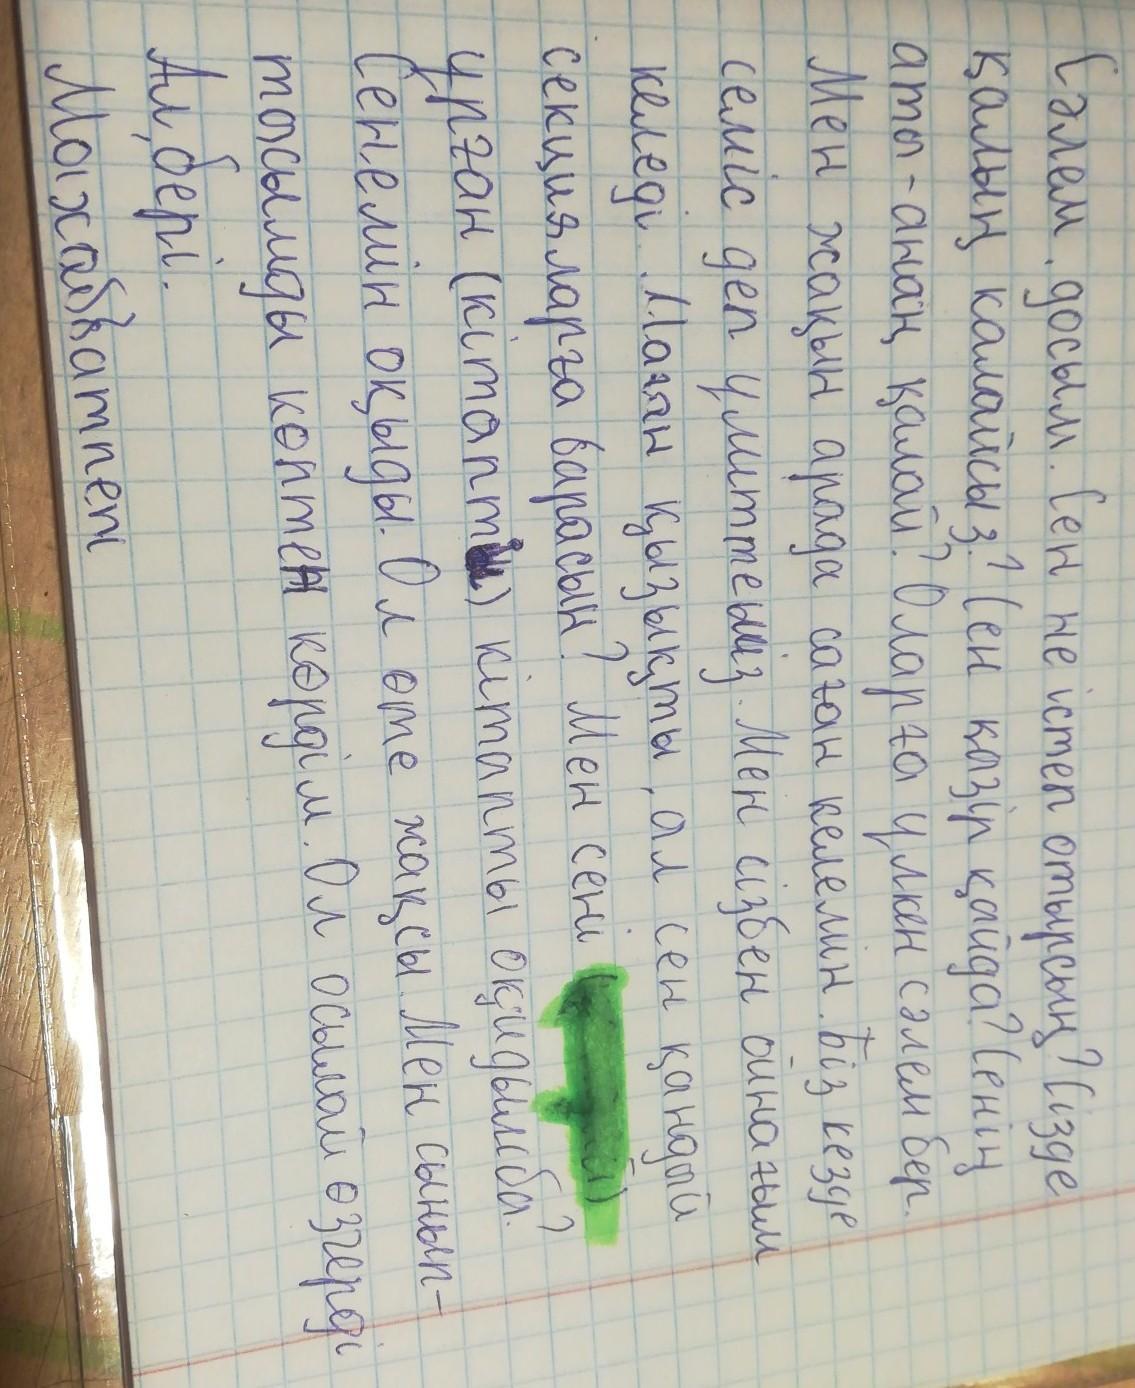 Сәлем, досым. Сен не істеп отырсың? Сізде
қалың калайсыз? Сен казір қайда? Сенің
ата-анаң қалай? Оларға үлкен сәлем бер.
Мен жақын арада саған келемін. Біз кезде
семіс деп үмиттеміз. Мен сізбен ойнағым
келеді. Маған қызықты, ал сен қандай
секцияларға варасын? Мен сені
ұрған (кітапт) кітапты оқидымба?
Сенемін оқыды. Ол өте жақсы. Мен сынып-
тасымды көптен көрдім. Ол осылай өзгерді
Ал, бері.
Махаббатпен